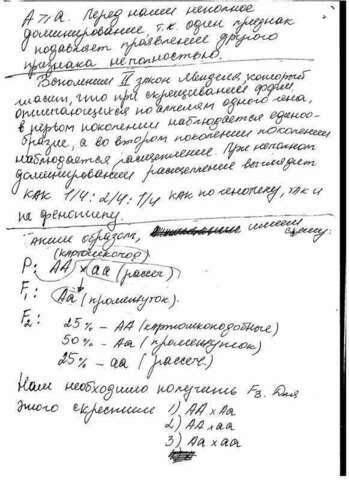 А ⩾ а. Перед нами неполное
доминирование, т.к. один признак
подавляет проявление другого
признака неполностью.
Вспомним II закон Менделя, который
гласит, что при скрещивании форм,
отличающихся по аллелям одного гена,
в первом поколении наблюдается едино-
бразие, а во втором поколении поколении
наблюдается расщепление. При неполном
доминировании расщепление выглядит
как 1/4 : 2/4 : 1/4 как по генотипу, так и
по фенотипу.
Таким образом, имеем схему:
(картошкопод)
P: AA × aa (рассеч)
F₁: Aa (промежуток).
F₂: 25% – AA (картошкоподобные)
50% – Aa (промежуток)
25% – aa (рассеч.)
Нам необходимо получить F₃. Для
этого скрестим 1) AA × Aa
2) AA × aa
3) Aa × aa